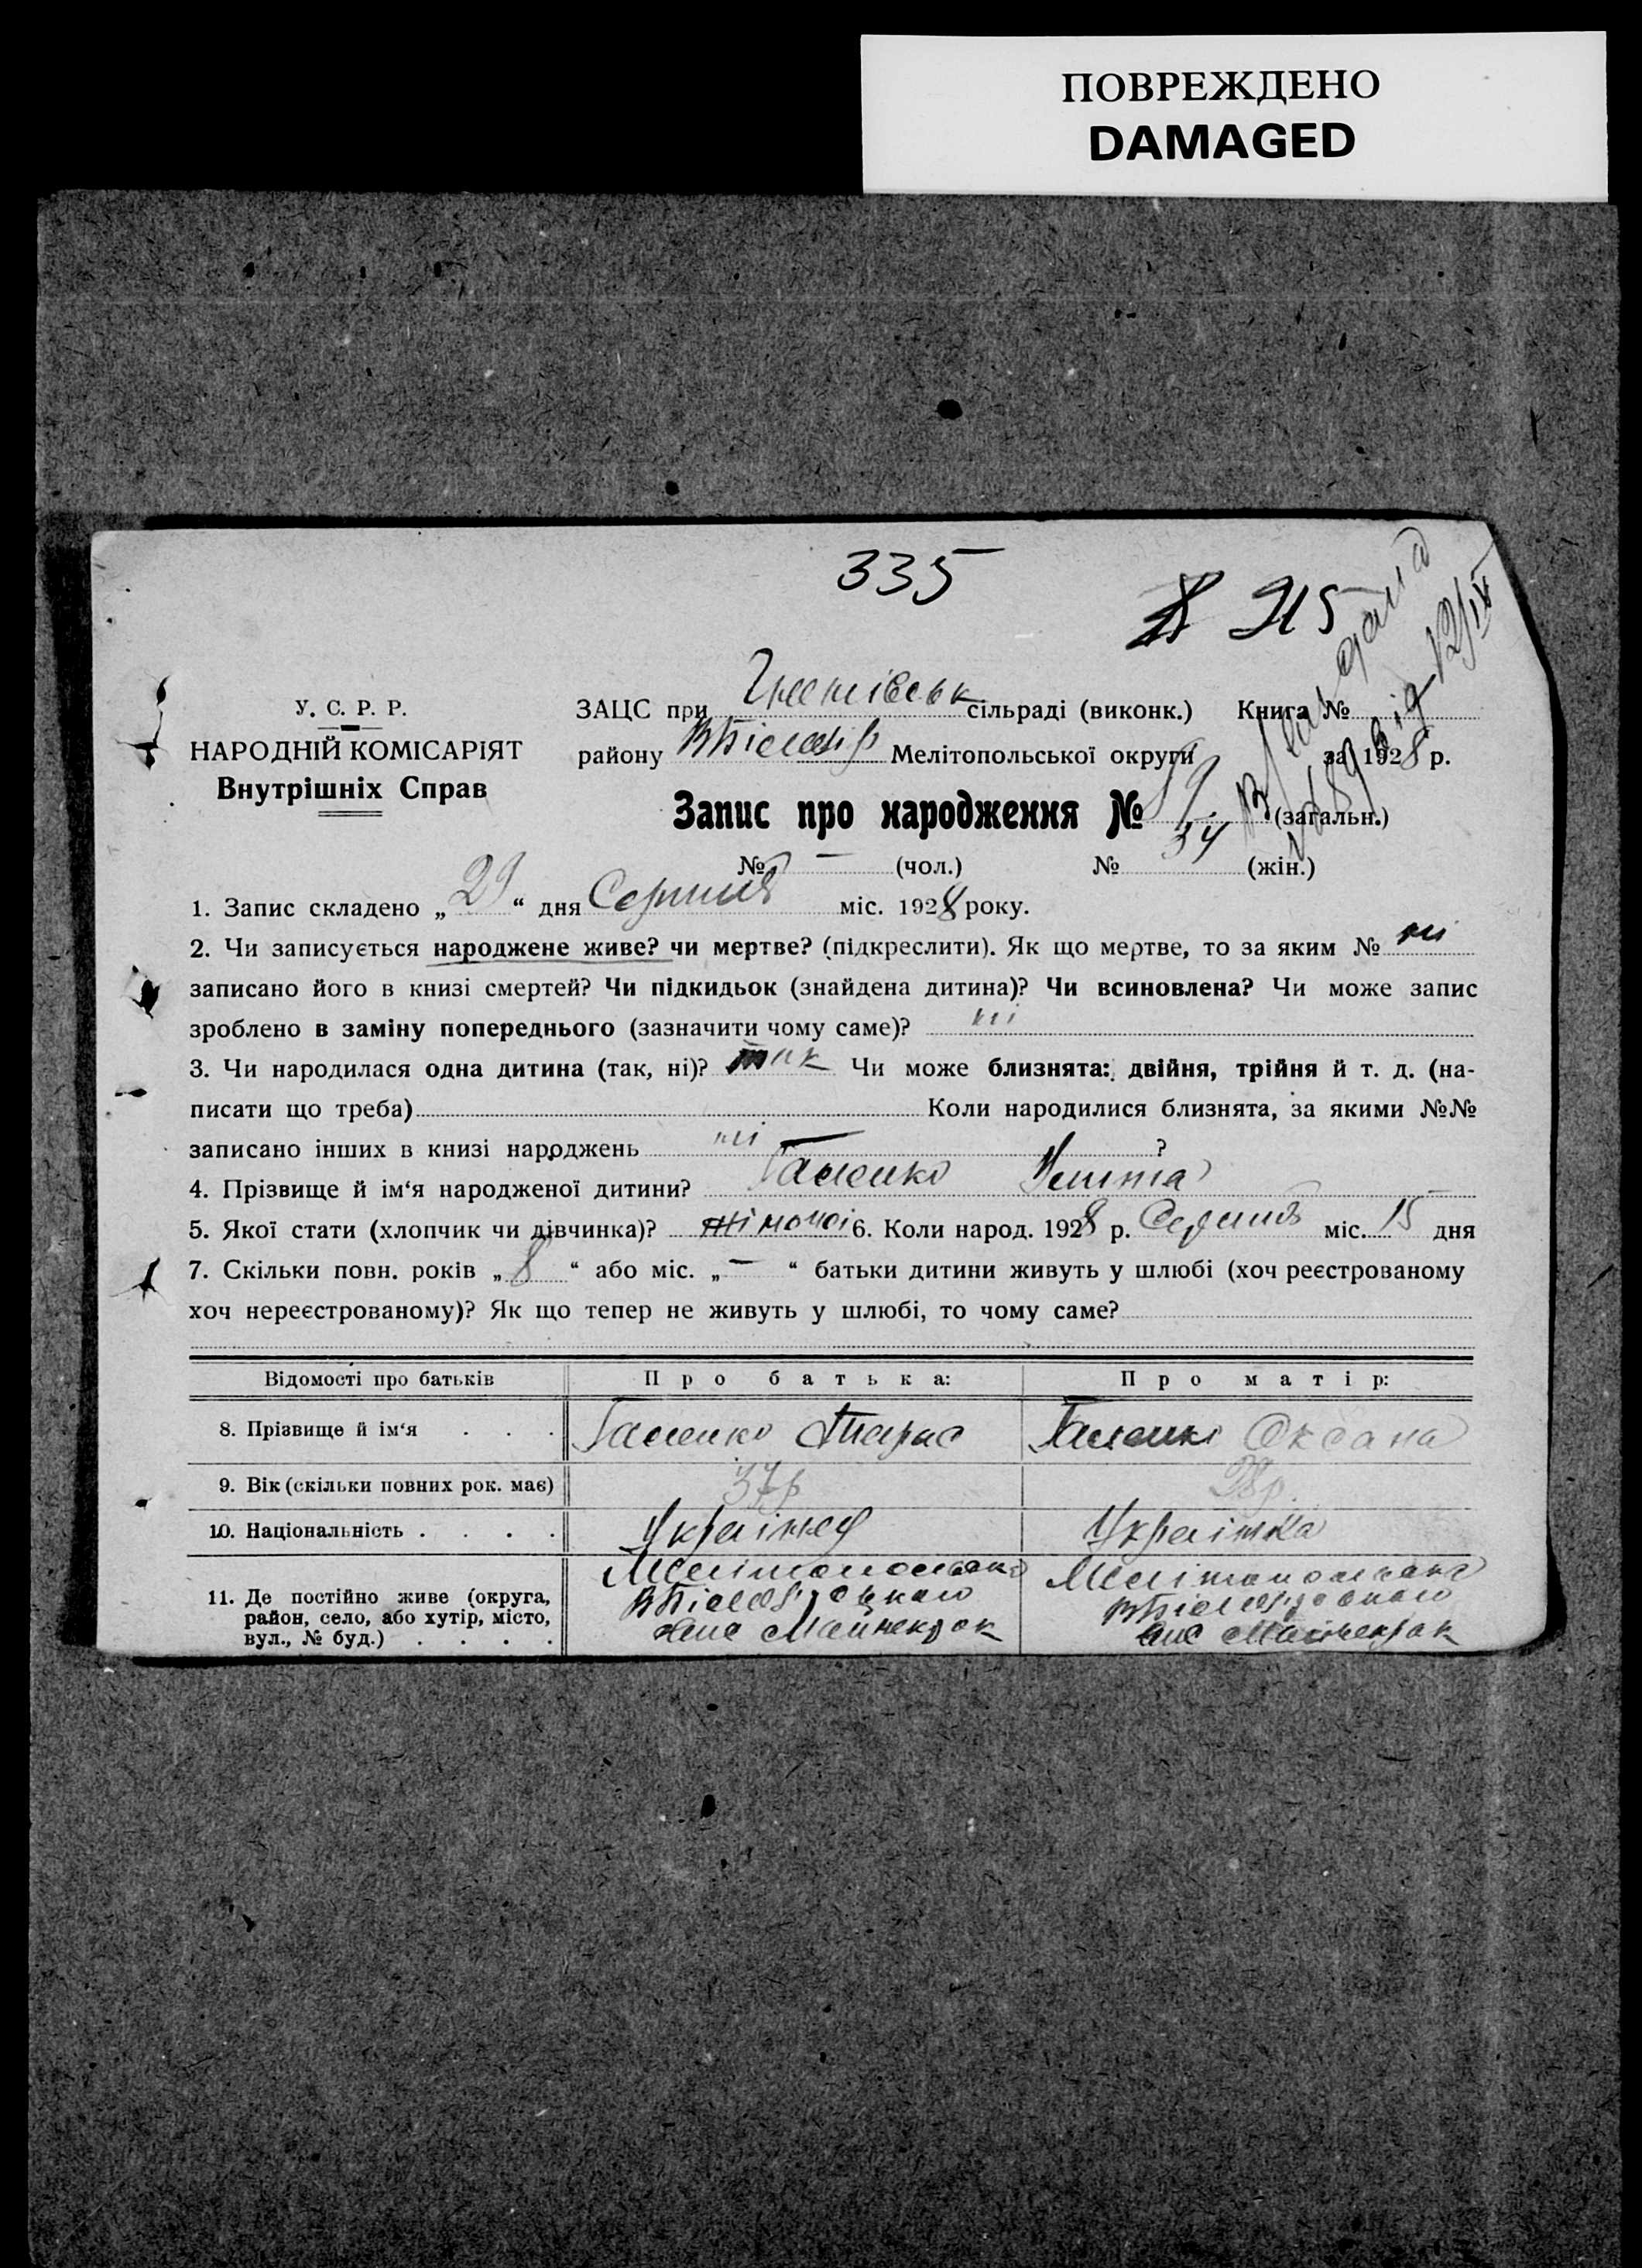 ПОВРЕЖДЕНО
DAMAGED
335
215
У. С. Р. Р.
НАРОДНІЙ КОМІСАРІЯТ
Внутрішніх Справ
ЗАЦС при сільраді (виконк.) Книга №
району Мелітопольської округи за 1928 р.
від 12/IX
Запис про народження № 59. (загальн.)
№ — (чол.) № 34 (жін.)
1. Запис складено „ 29 “ дня Серпня міс. 1928 року.
2. Чи записується народжене живе? чи мертве? (підкреслити). Як що мертве, то за яким № ні
записано його в книзі смертей? Чи підкидьок (знайдена дитина)? Чи всиновлена? Чи може запис
зроблено в заміну попереднього (зазначити чому саме)? ні
3. Чи народилася одна дитина (так, ні)? так Чи може близнята: двійня, трійня й т. д. (на-
писати що треба) Коли народилися близнята, за якими №№
записано інших в книзі народжень ні ?
4. Прізвище й ім‘я народженої дитини? Галенко
5. Якої стати (хлопчик чи дівчинка)? жіночоі 6. Коли народ. 1928 р. Серпня міс. 15 дня
7. Скільки повн. років „ 8 “ або міс. „ — “ батьки дитини живуть у шлюбі (хоч реєстрованому
хоч нереєстрованому)? Як що тепер не живуть у шлюбі, то чому саме?
Відомості про батьків Про батька: Про матір:
8. Прізвище й ім‘я . . . Галенко Тарас Галенко Оксана
9. Вік (скільки повних рок. має) 37р 28р.
10. Національність . . . . Украінец Украінка
11. Де постійно живе (округа,
район, село, або хутір, місто,
вул., № буд.) . . . .